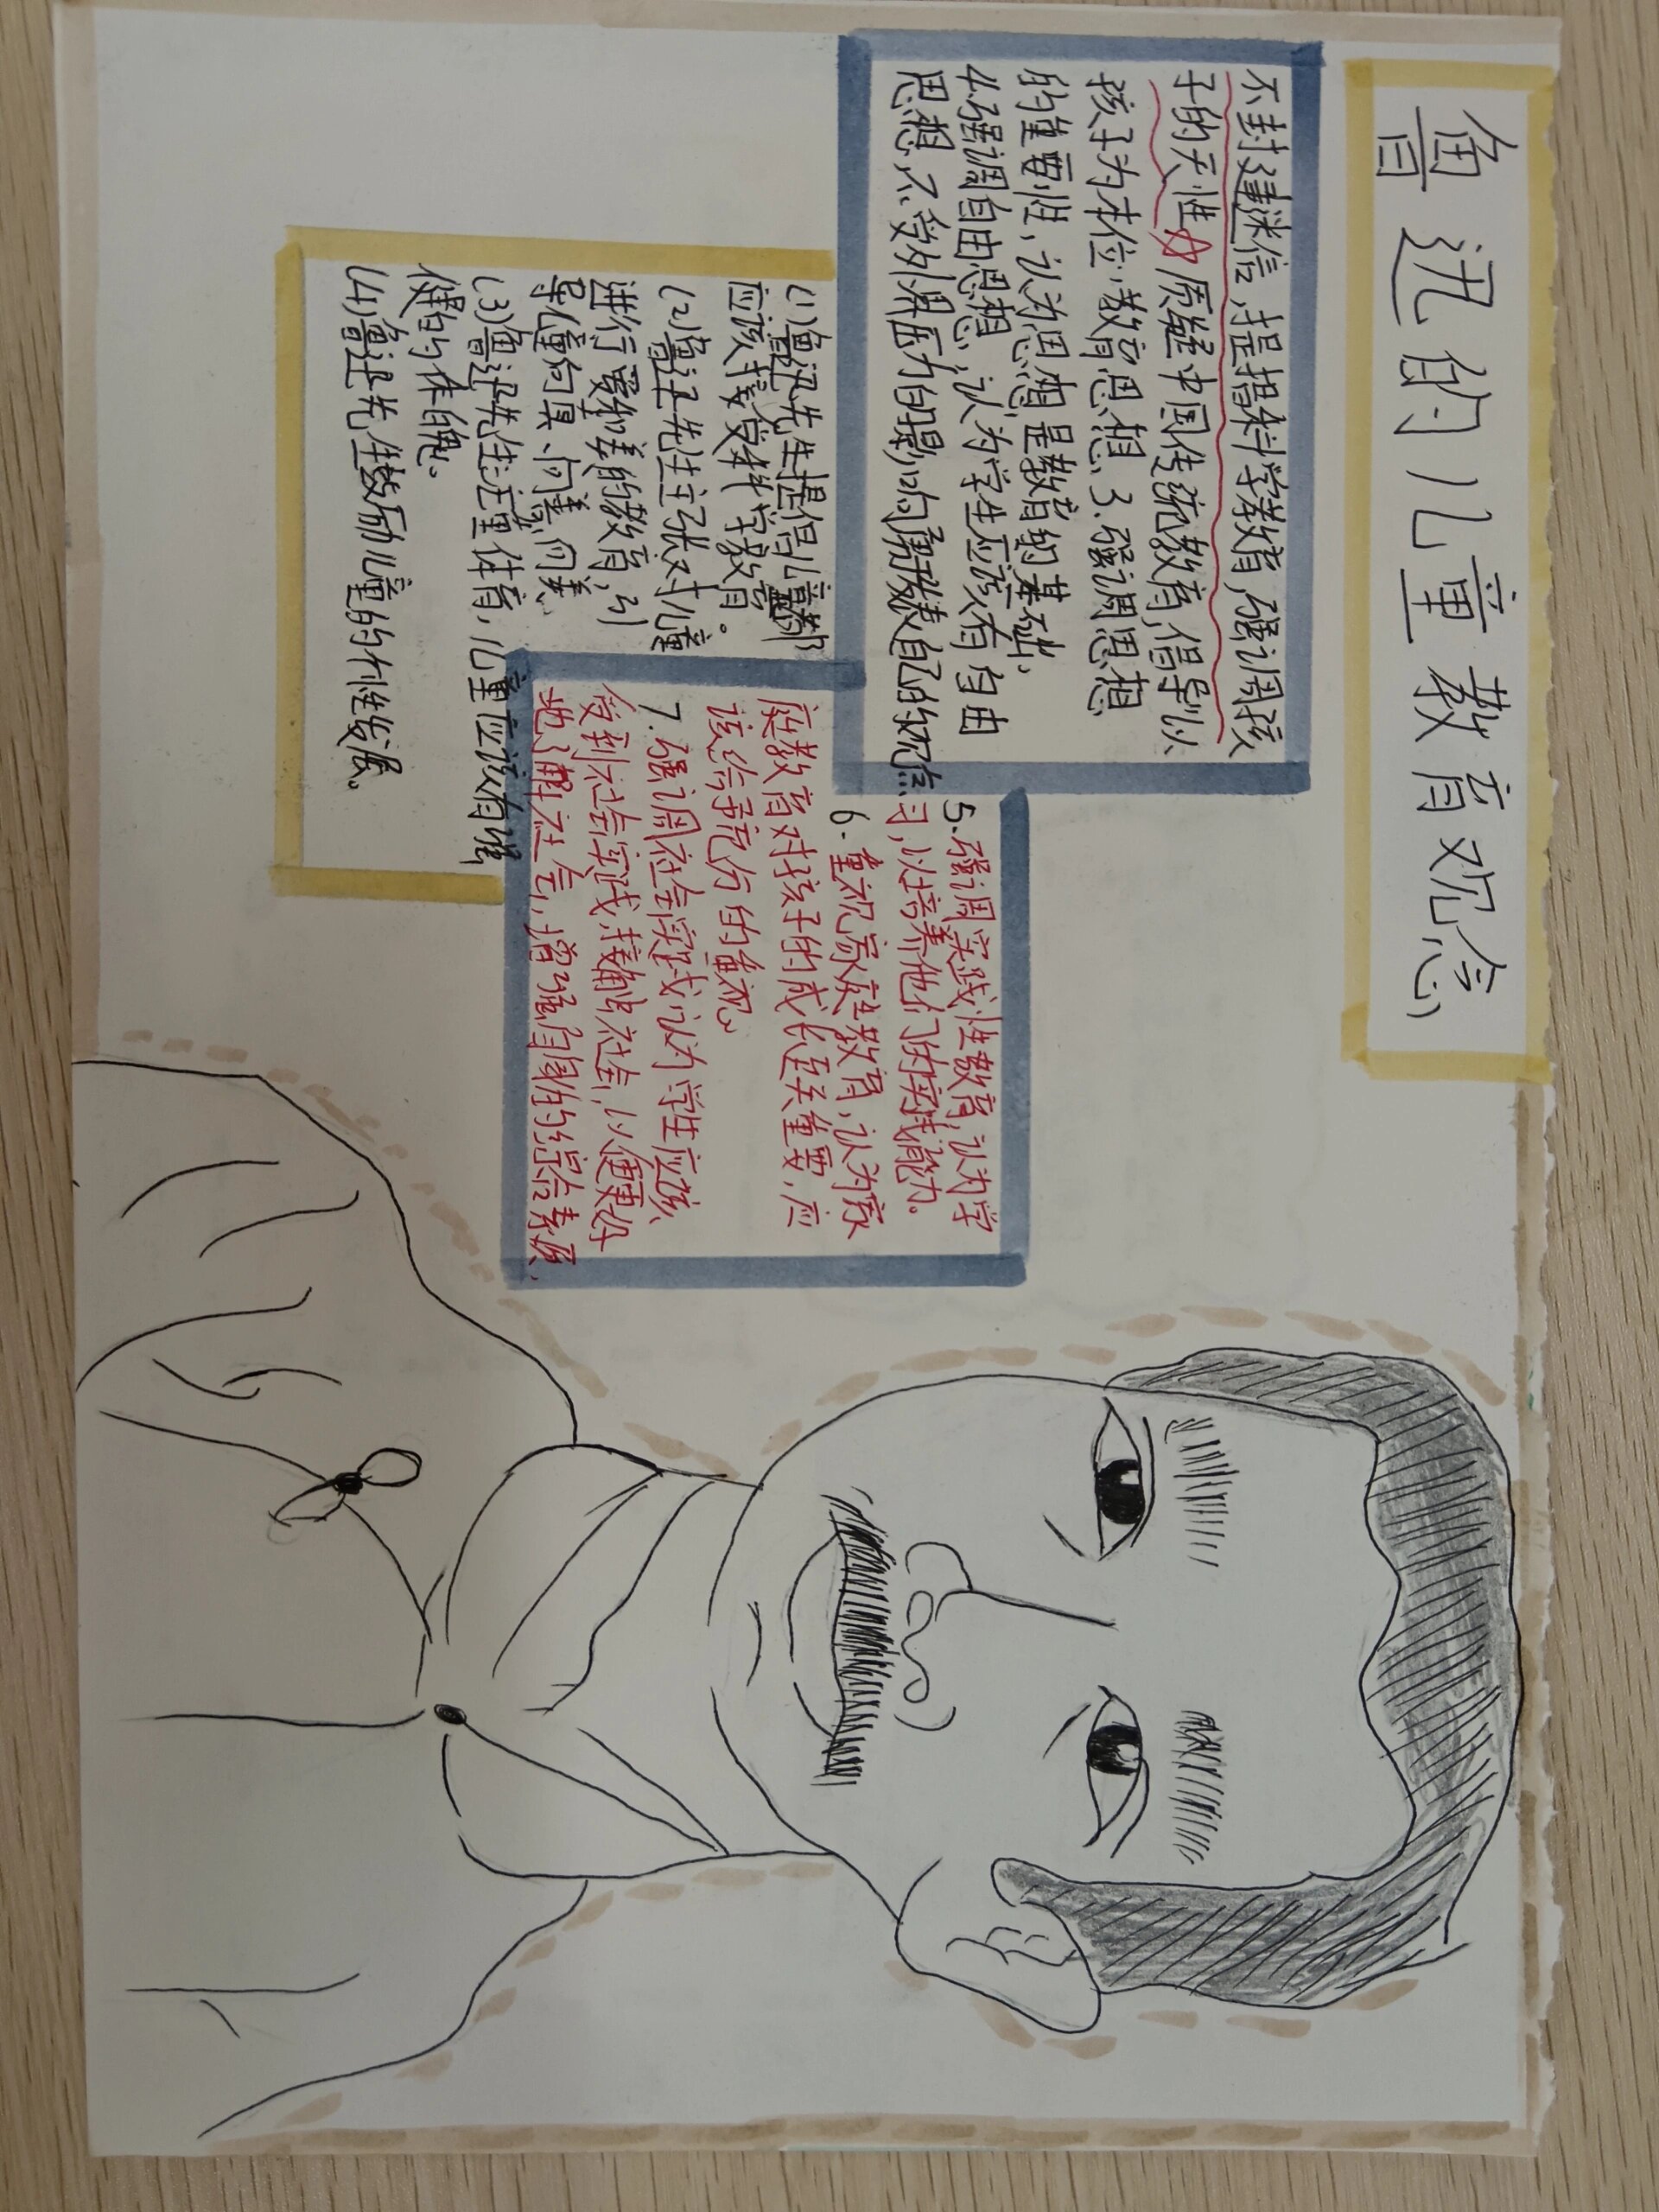 鲁迅的儿童教育观念
不封建迷信,提揩科学教育,强调孩
子的天性 质疑中国传统教育,倡导以
孩子为本位,教育思想 3.强调思想
的重要性,认为思想是教育的基础,
4.强调自由思想,认为学生应该有自由
思想,不受外界压力的影响勇发表自己的观点
(1)鲁迅先生提倡儿童都
应该接受科学教育。
(2)鲁迅先生主张对儿童
进行爱和美的教育,引
导儿童向真、向善、向美、
(3)鲁迅先生注重体育,儿童应该有强
健的体魄。
(4)鲁迅先生鼓励儿童的个性发展。
5.强调实践性教育,认为学
习,以培养他们的实践能力。
6.重视家庭教育,认为家
庭教育对孩子的成长至关重要,应
该给予充分的重视。
7.强调社会实践,认为学生应该
受到社会实践,接触社会,以便更好
地了解社会,增强自身的综合素质,